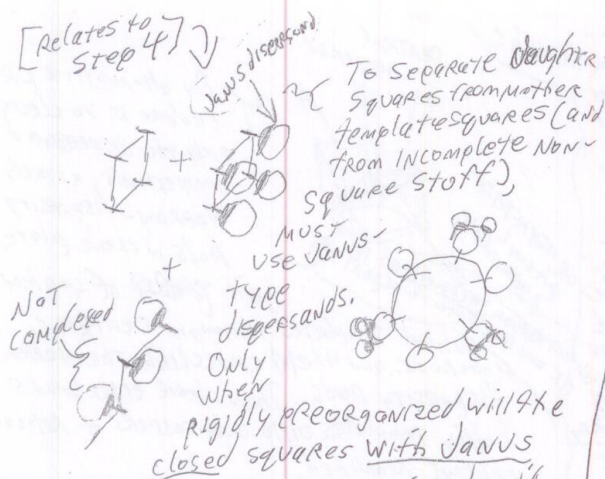 [Relates to
Step 4]
Janus dispersand
To Separate daughter
Squares from Mother
template squares (and
from incomplete Non-
Square Stuff),
MUST
USE JANUS-
type
dispersands.
Only
when
rigidly preorganized will the
closed squares with Janus
+
+
Not
Completed